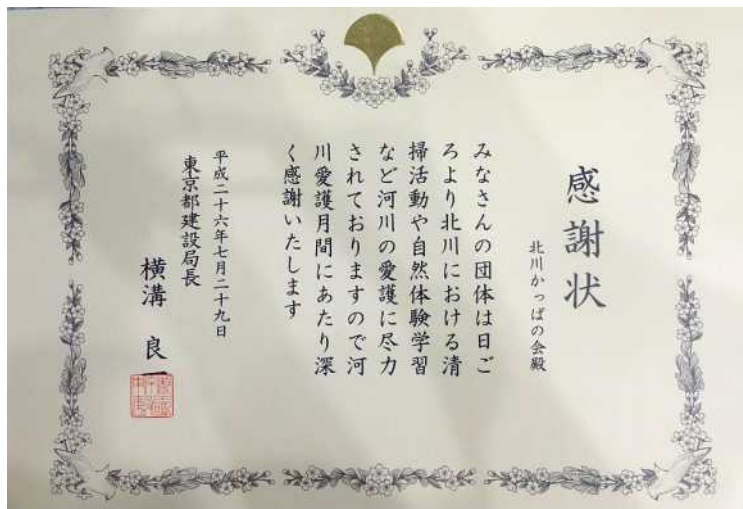 感謝状
北川かっぱの会殿
みなさんの団体は日ご
ろより北川における清
掃活動や自然体験学習
など河川の愛護に尽力
されておりますので河
川愛護月間にあたり深
く感謝いたします
平成二十六年七月二十九日
東京都建設局長
横溝良一